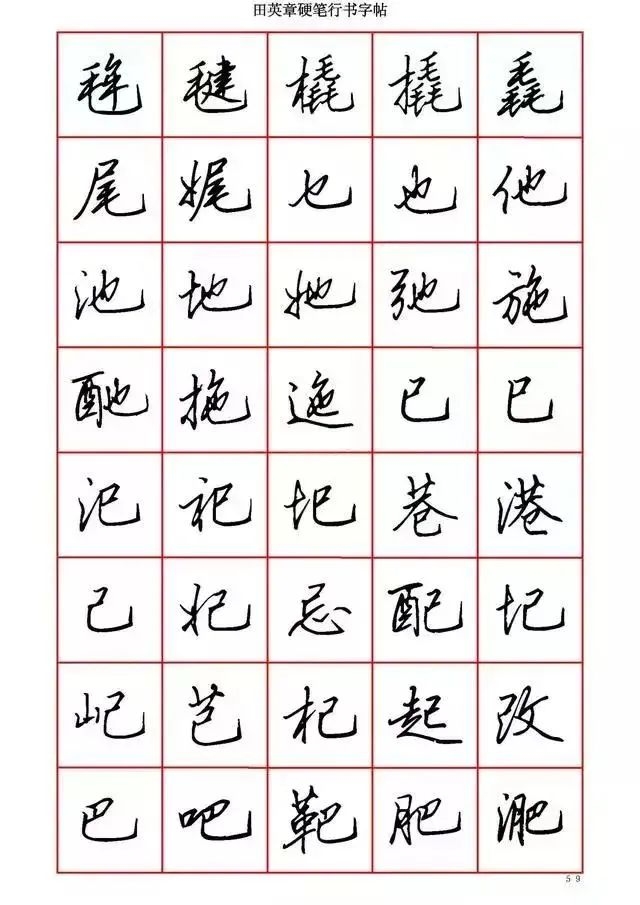 田英章硬笔行书字帖
毪毽橇撬毳
尾娓乜也他
池地她弛施
酏拖迤已巳
汜祀圯巷港
己妃忌配圮
屺芑杞起改
巴吧靶肥淝
59